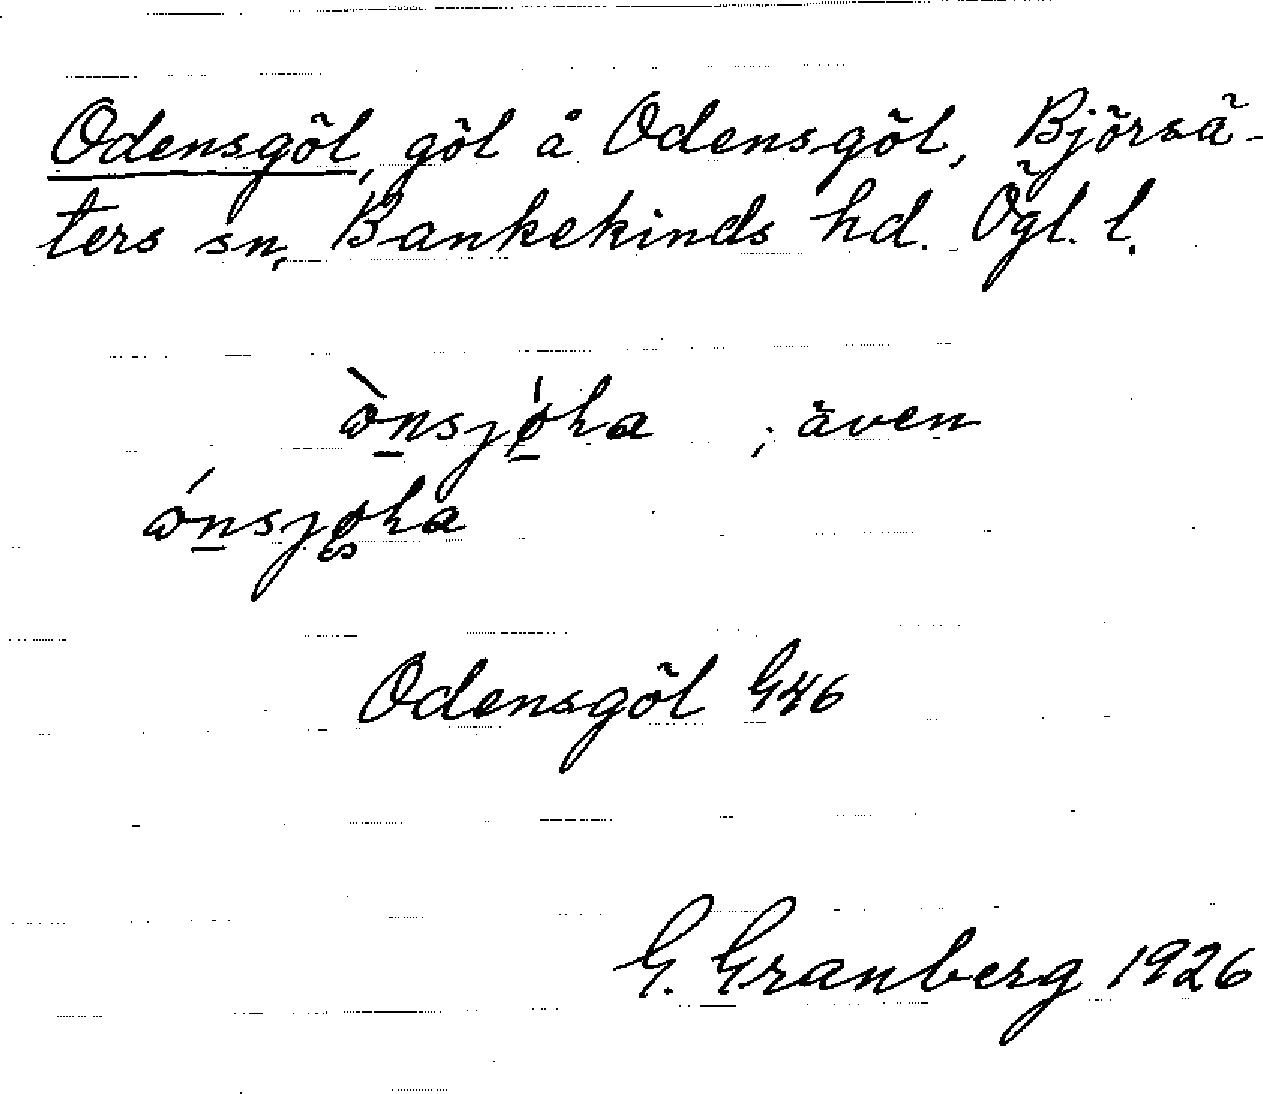 Odensgöl, göl å Odensgöl, Björsä-
ters sn, Bankekinds hd. Ögl. l.
; även
Odensgöl G46
G. Granberg 1926